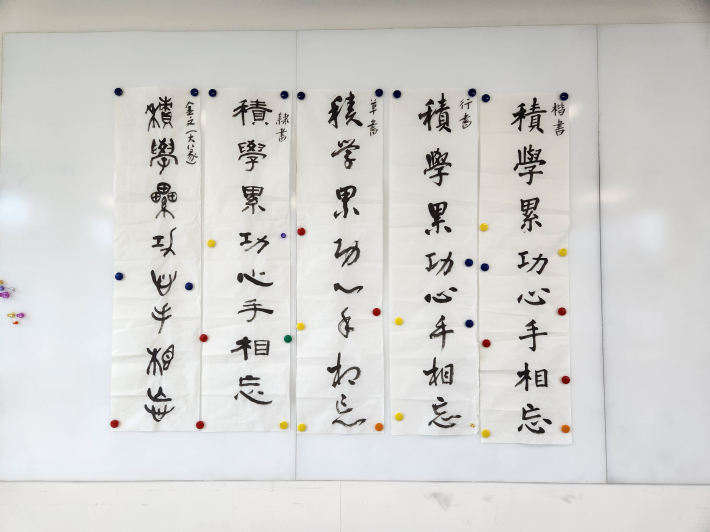 楷書
積學累功心手相忘
行書
積學累功心手相忘
草書
積学累功心手相忘
隸書
積學累功心手相忘
金文(大篆)
積學纍功心手相忘